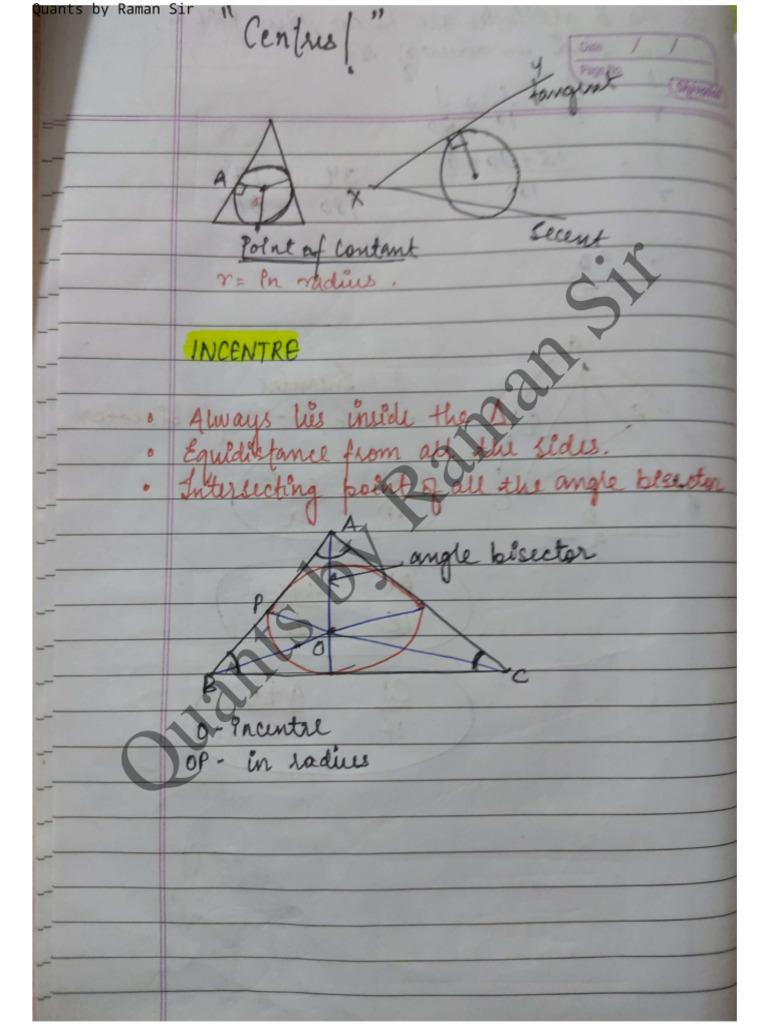 Quants by Raman Sir
"Centres!"
Date / /
Page No.
Shivalal
y
tangent
A
x
r
Secent
Point of Contant
r = In radius.
INCENTRE
• Always lies inside the Δ.
• Equidistance from all the sides.
• Intersecting point of all the angle bisector
A
angle bisector
P
O
B
C
O - incentre
OP - in radius
Quants by Raman Sir